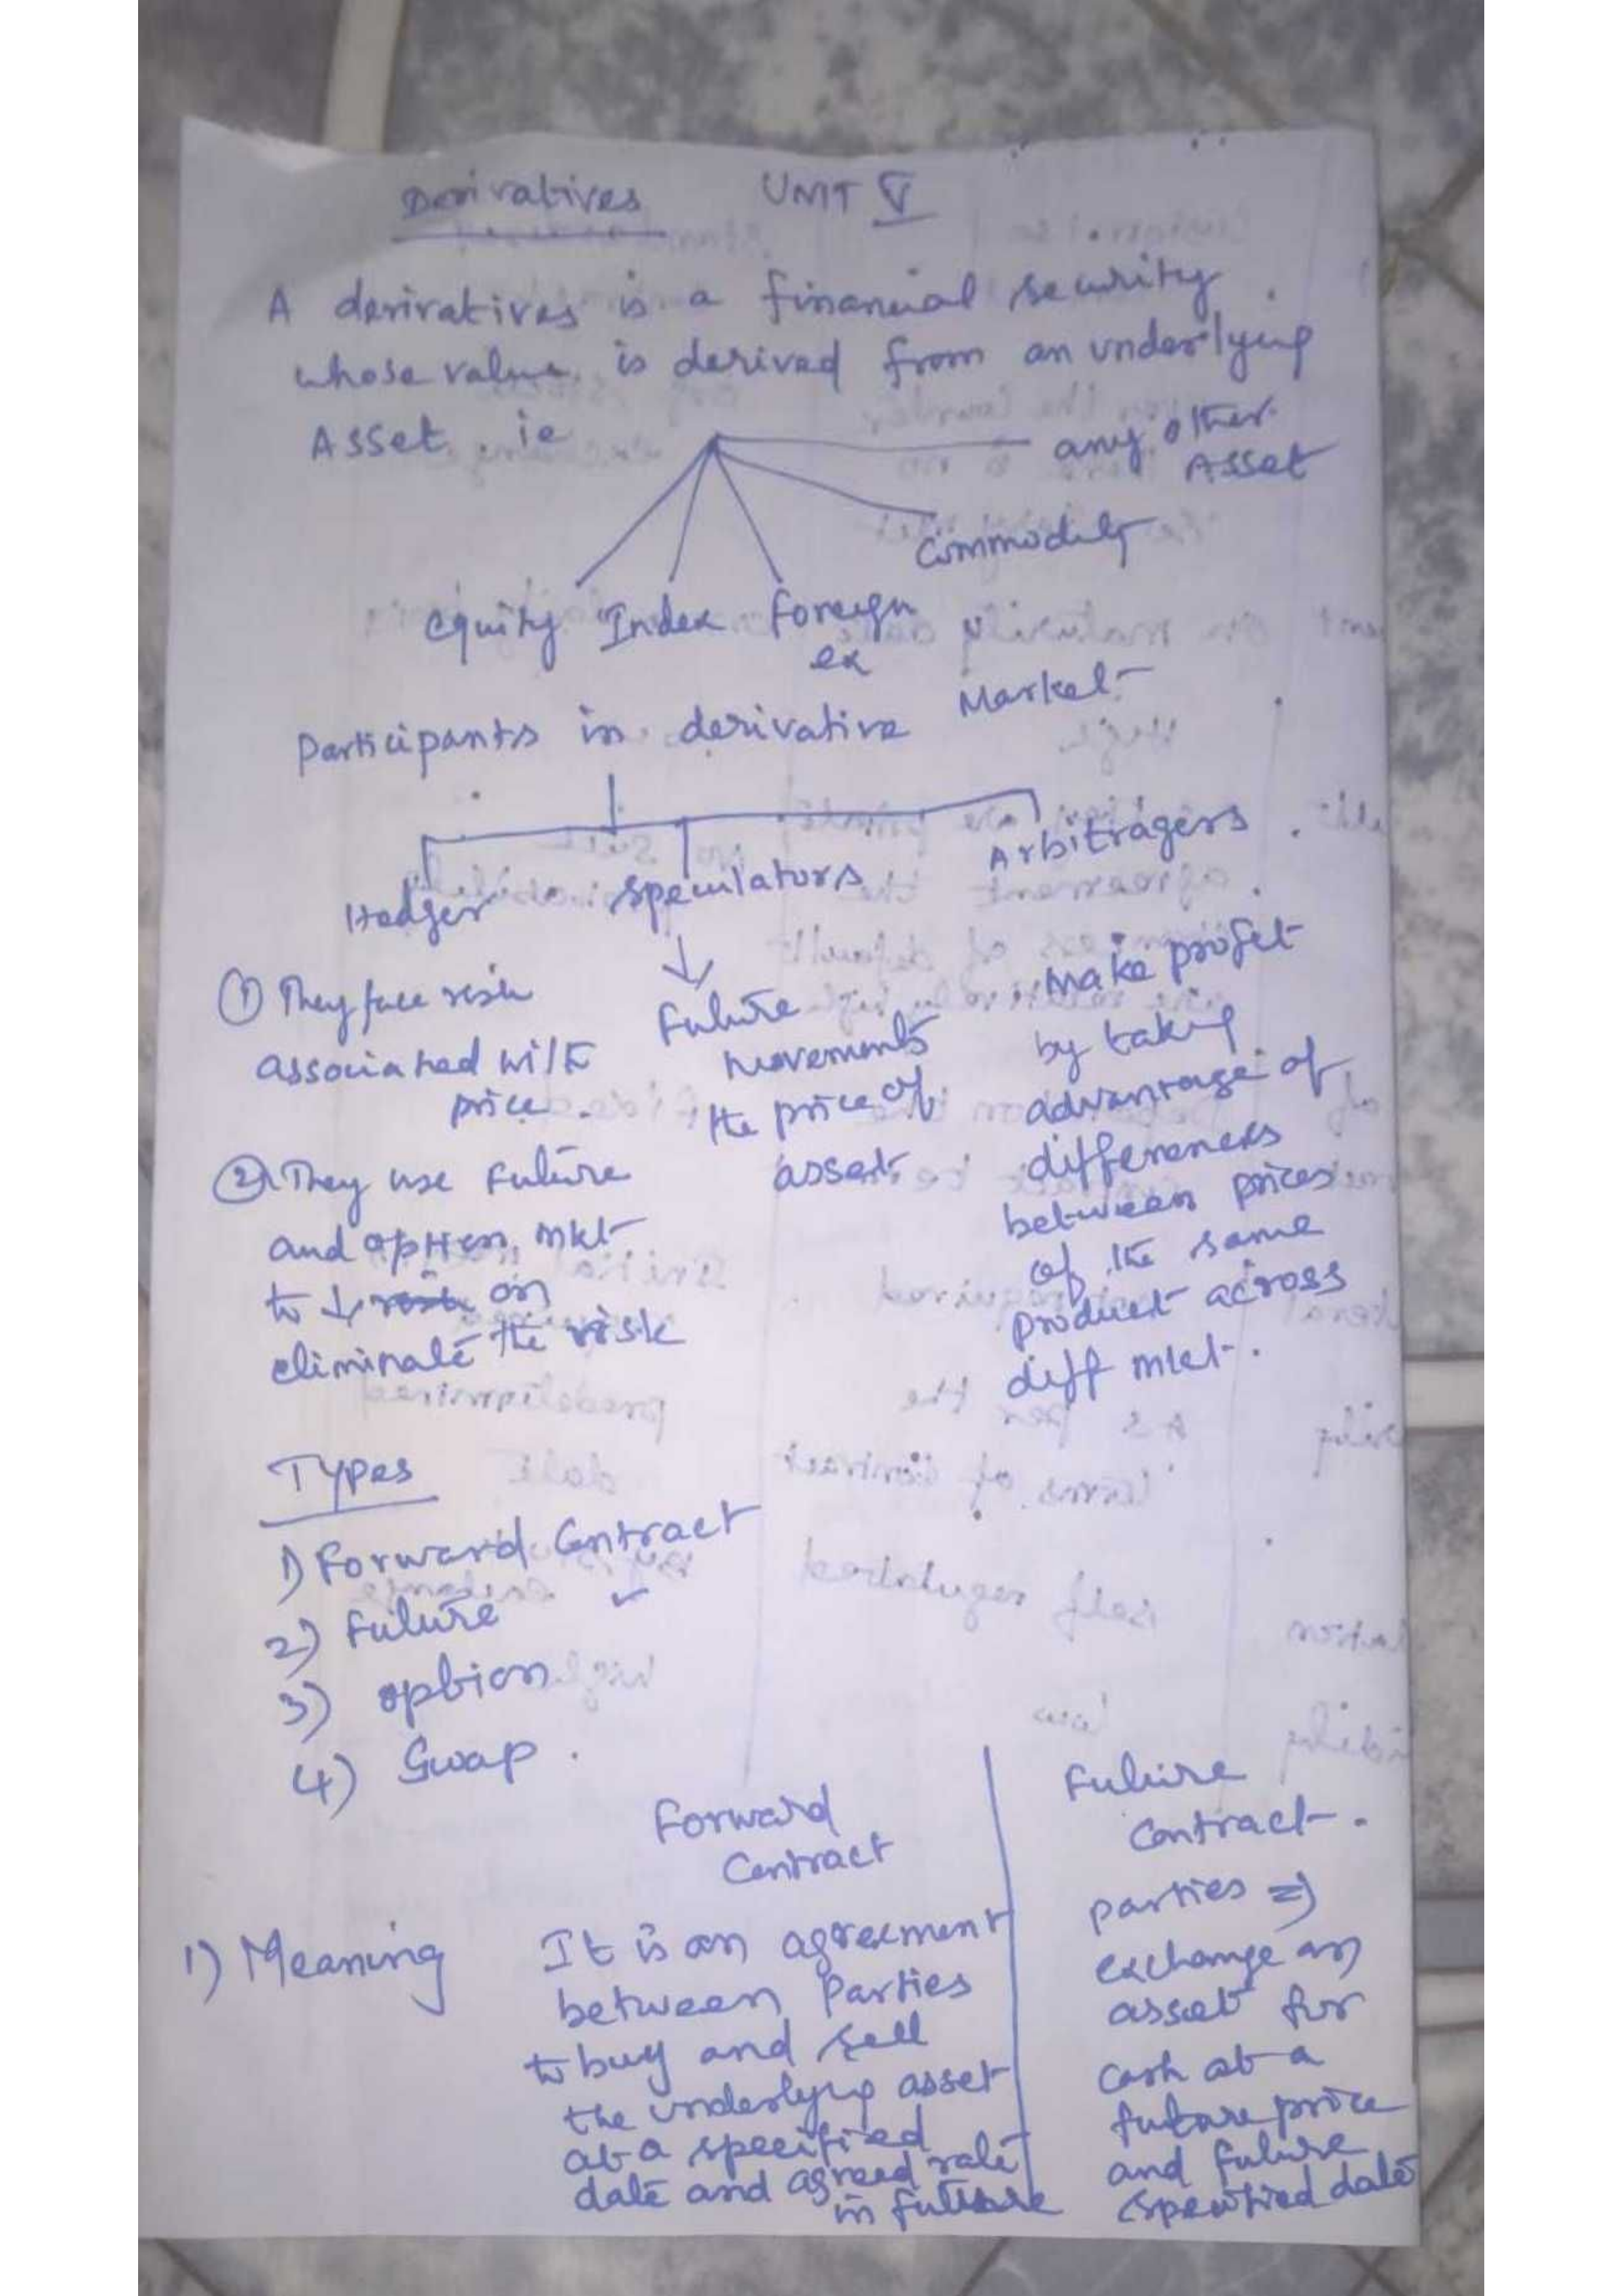 Derivatives UNIT V
A derivatives is a financial security
whose value is derived from an underlying
Asset. ie
any other
Asset
Commodity
equity Index foreign
ex
Participants in derivative Market
Hedger speculators Arbitragers
① They face risk
associated with
price.
② They use future
and option mkt
to ↓ risk or
eliminate the risk
↓
future
movements
the price of
asset
make profit
by taking
advantage of
differences
between prices
of the same
product across
diff mkt.
Types
1) Forward Contract
2) Future
3) option
4) Swap.
Forward
Contract
Future
Contract.
1) Meaning
It is an agreement
between Parties
to buy and sell
the underlying asset
at a specified
date and agreed rate
in future
parties ⇒
exchange an
asset for
cash at a
future price
and future
specified date